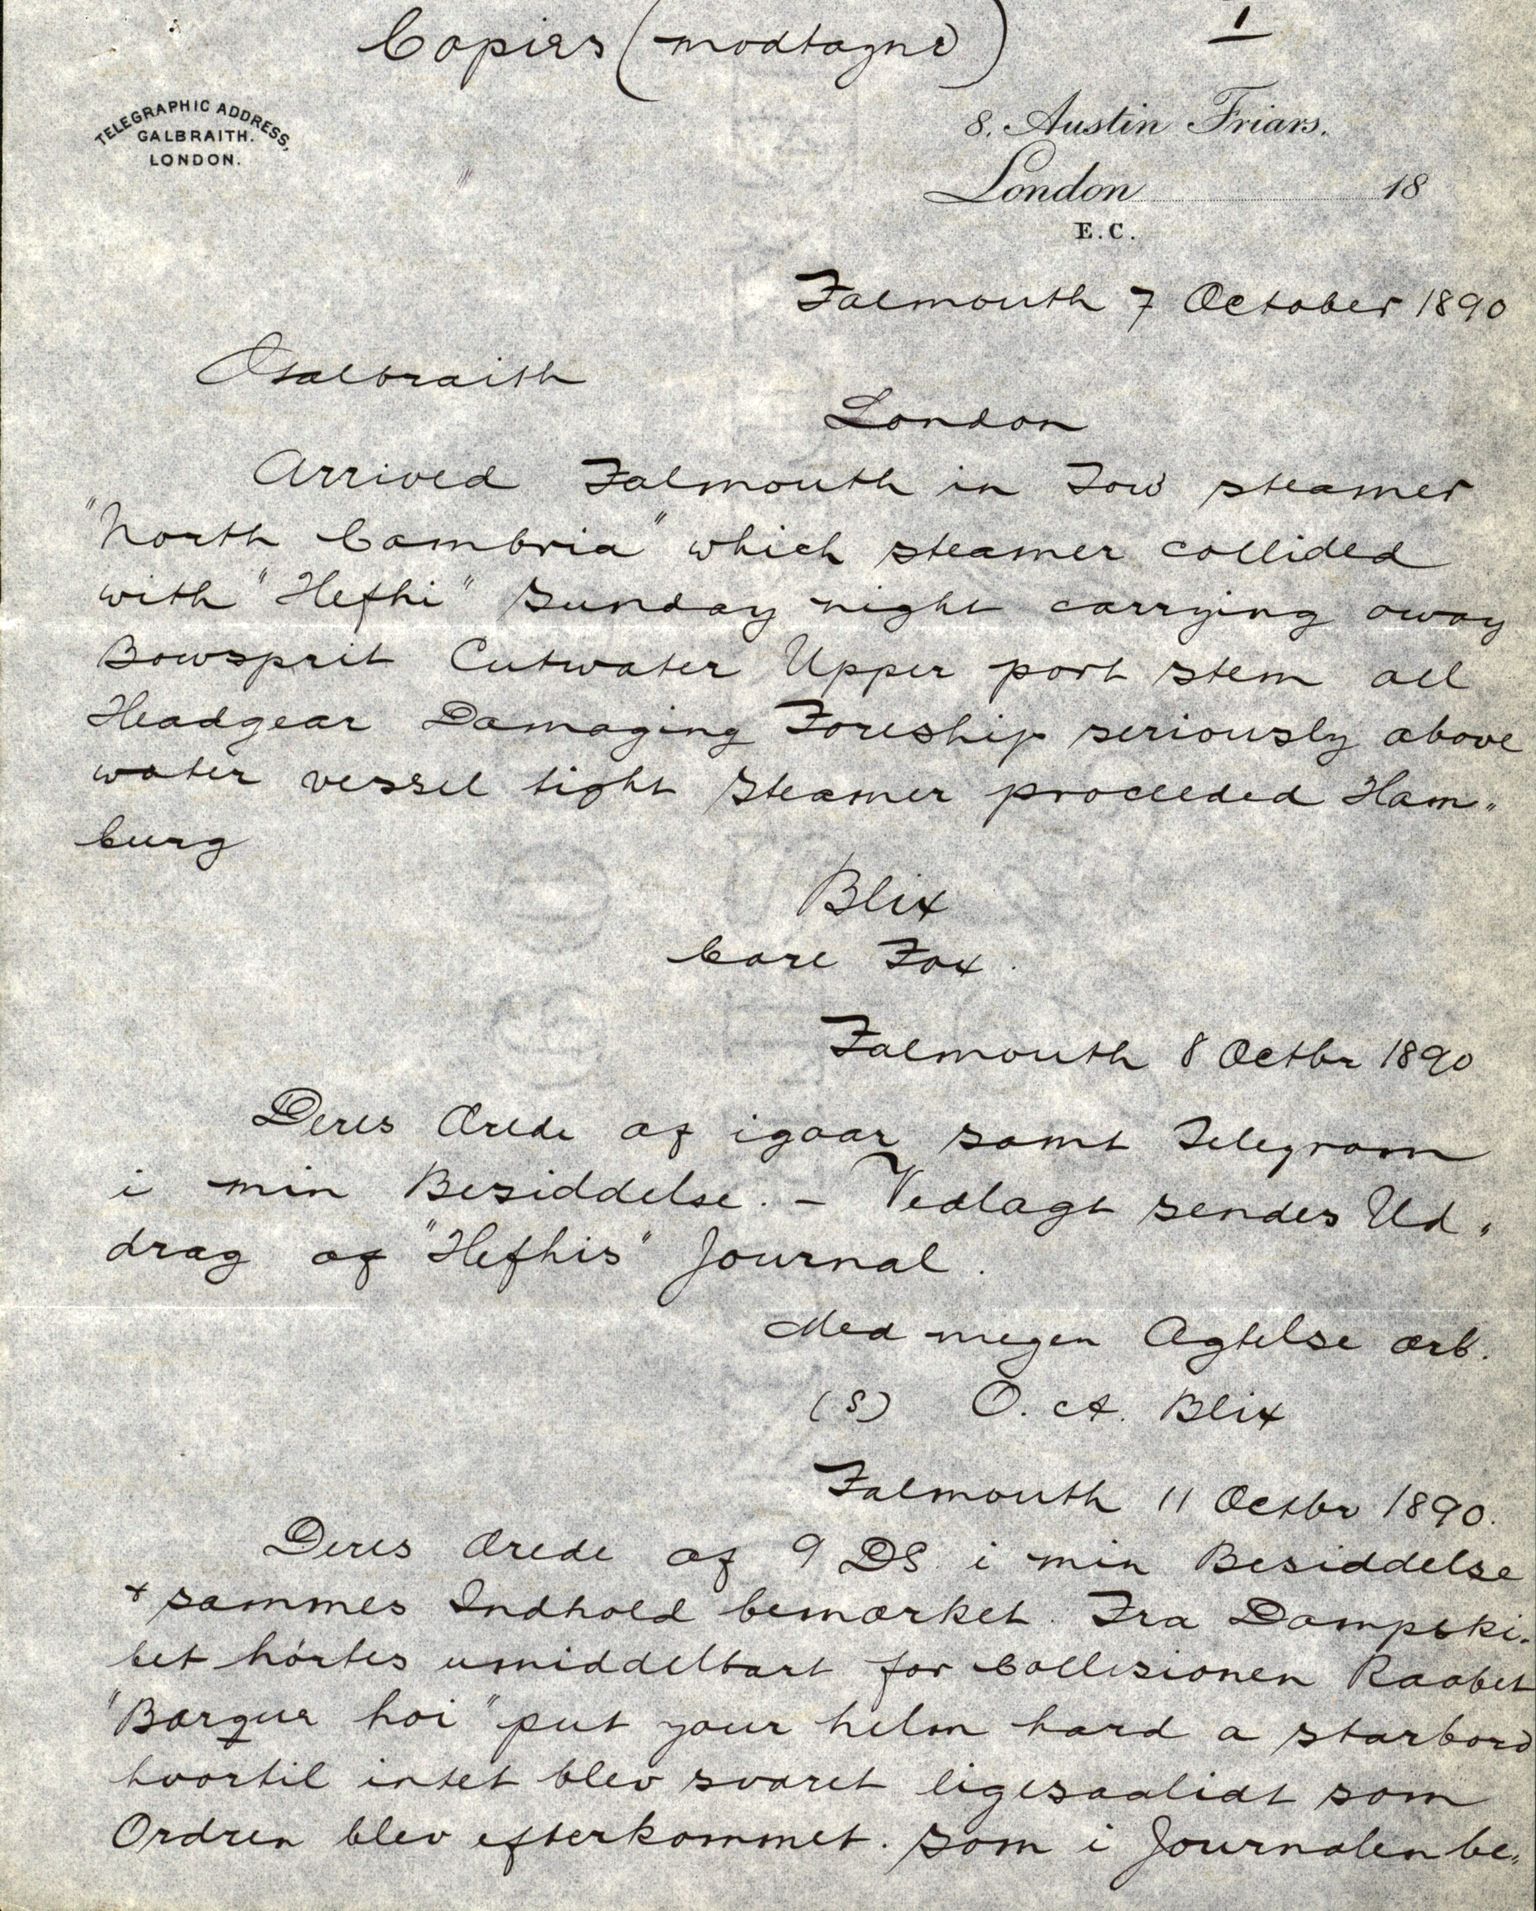 Copier (modtagne)
1
TELEGRAPHIC ADDRESS,
GALBRAITH.
LONDON.
8. Austin Friars.
London 18
E.C.
Falmouth 7 October 1890
Galbraith
London
Arrived Falmouth in Tow steamer
"North Cambria" which steamer collided
with "Hefhi" Sunday night carrying away
Bowsprit Cutwater Upper port stem all
Headgear Damaging Foreship seriously above
water vessel tight steamer proceeded Ham„
burg
Blix
Care Fox.
Falmouth 8 Octbr 1890
Deres Ærede af igaar samt Telegram
i min Besiddelse. – Vedlagt sendes Ud„
drag af "Hefhis" Journal.
Med megen Agtelse ærb.
(S) O. A. Blix
Falmouth 11 Octbr 1890.
Deres Ærede af 9 DS. i min Besiddelse
+ sammes Indhold bemærket. Fra Dampski-
bet hörtes umiddelbart før Collisionen Raabet
"Barque hoi" put your helm hard a starbord
hvortil intet blev svaret ligesaalidt som
Ordren blev efterkommet. Som i Journalen be„